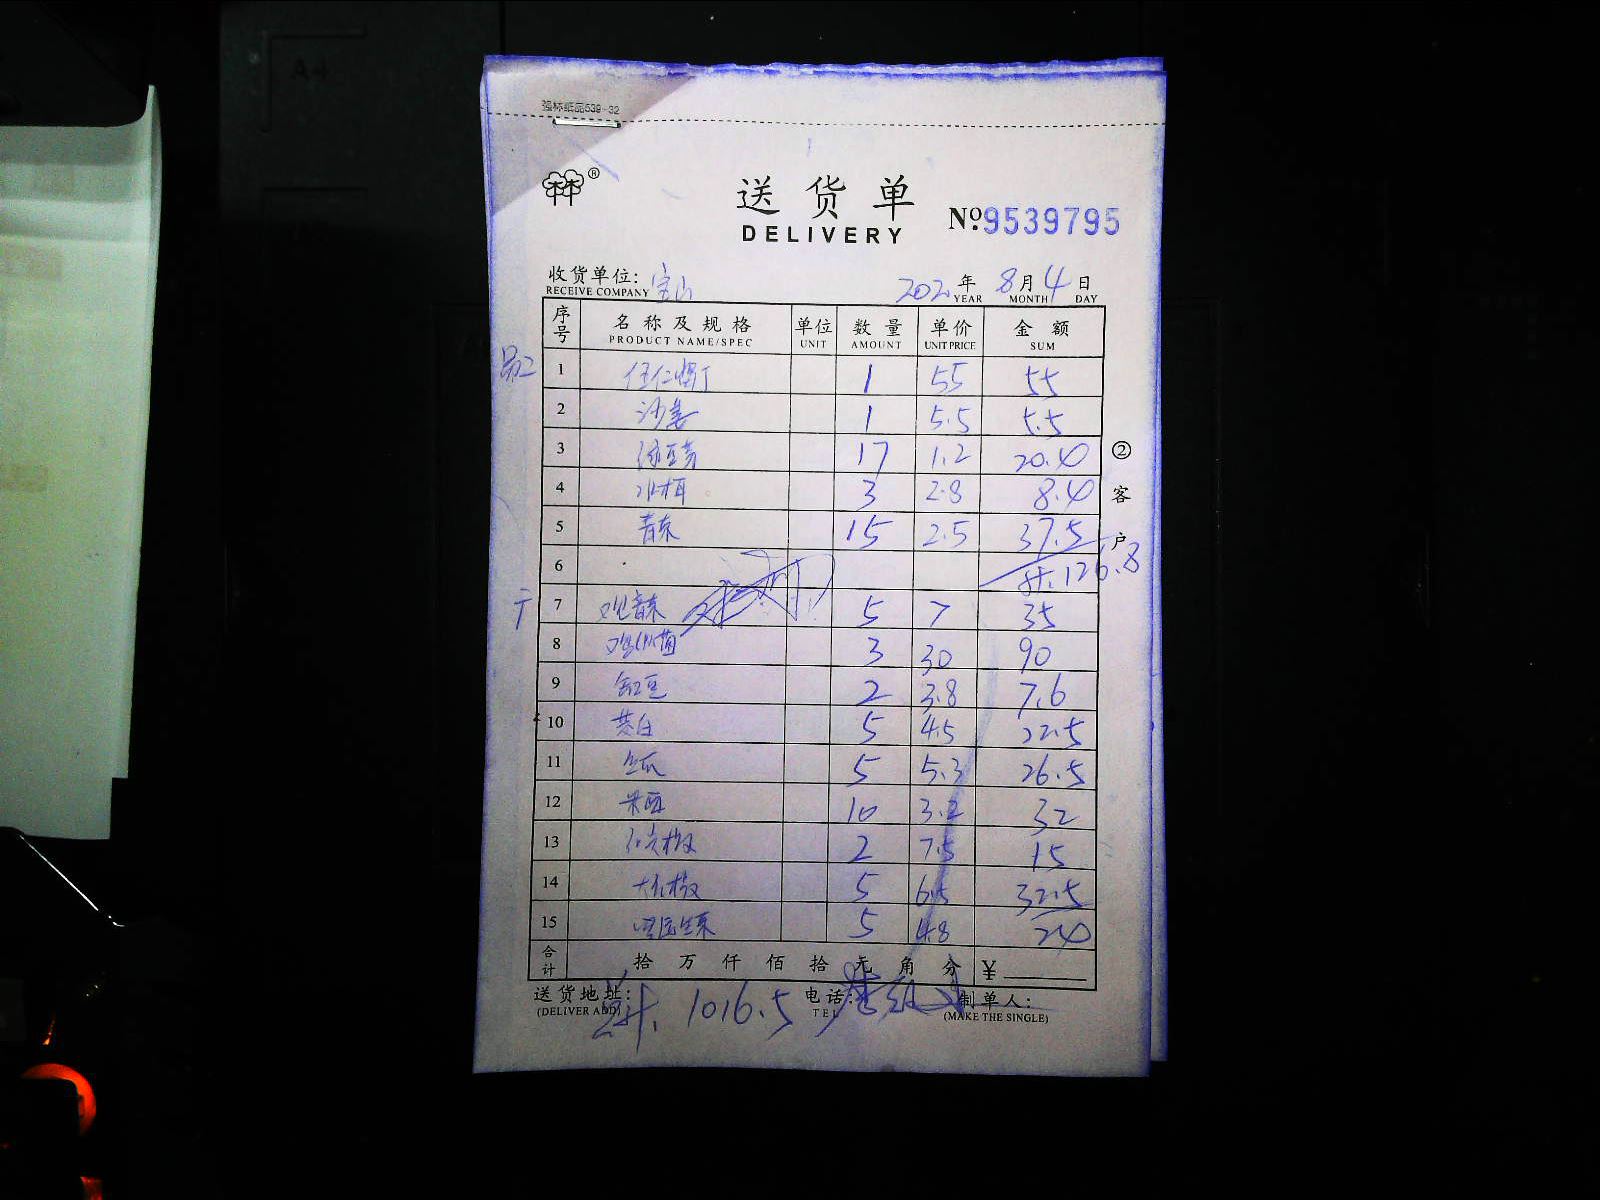 强林纸品539-32
送货单
DELIVERY
No:9539795
收货单位: 宝山 202 年 8 月 4 日
RECEIVE COMPANY YEAR MONTH DAY
序号 名称及规格 单位 数量 单价 金额
PRODUCT NAME/SPEC UNIT AMOUNT UNIT PRICE SUM
1 1 55 55
2 沙姜 1 5.5 5.5
3 绿豆芽 17 1.2 20.4
4 水木耳 3 2.8 8.4
5 青东 15 2.5 37.5
6 计.126.8
7 5 7 35
8 3 30 90
9 豇豆 2 3.8 7.6
10 黄白 5 4.5 22.5
11 5 5.3 26.5
12 10 3.2 32
13 2 7.5 15
14 5 6.5 32.5
15 5 4.8 24
合计 拾 万 仟 佰 拾 元 角 分 ¥
送货地址: 电话: 制单人:
(DELIVER ADD) TEL (MAKE THE SINGLE)
总计. 1016.5
②客户